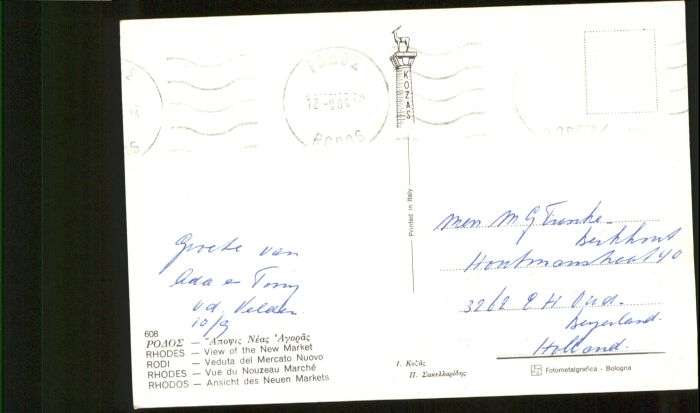 ΡΟΔΟΣ
KOZAS
Printed in Italy
Groete van
Ada en Tony
v.d. Velden
10/9
608
ΡΟΔΟΣ — Ἄποψις Νέας Ἀγορᾶς
RHODES — View of the New Market
RODI — Veduta del Mercato Nuovo
RHODES — Vue du Nouzeau Marché
RHODOS — Ansicht des Neuen Markets
Ι. Κοζᾶς
Π. Σακελλαρίδης
M G Franke
Berkhout
Houtmanstraat 40
3262 EH Oud-
Beyerland.
Holland.
Fotometalgrafica - Bologna